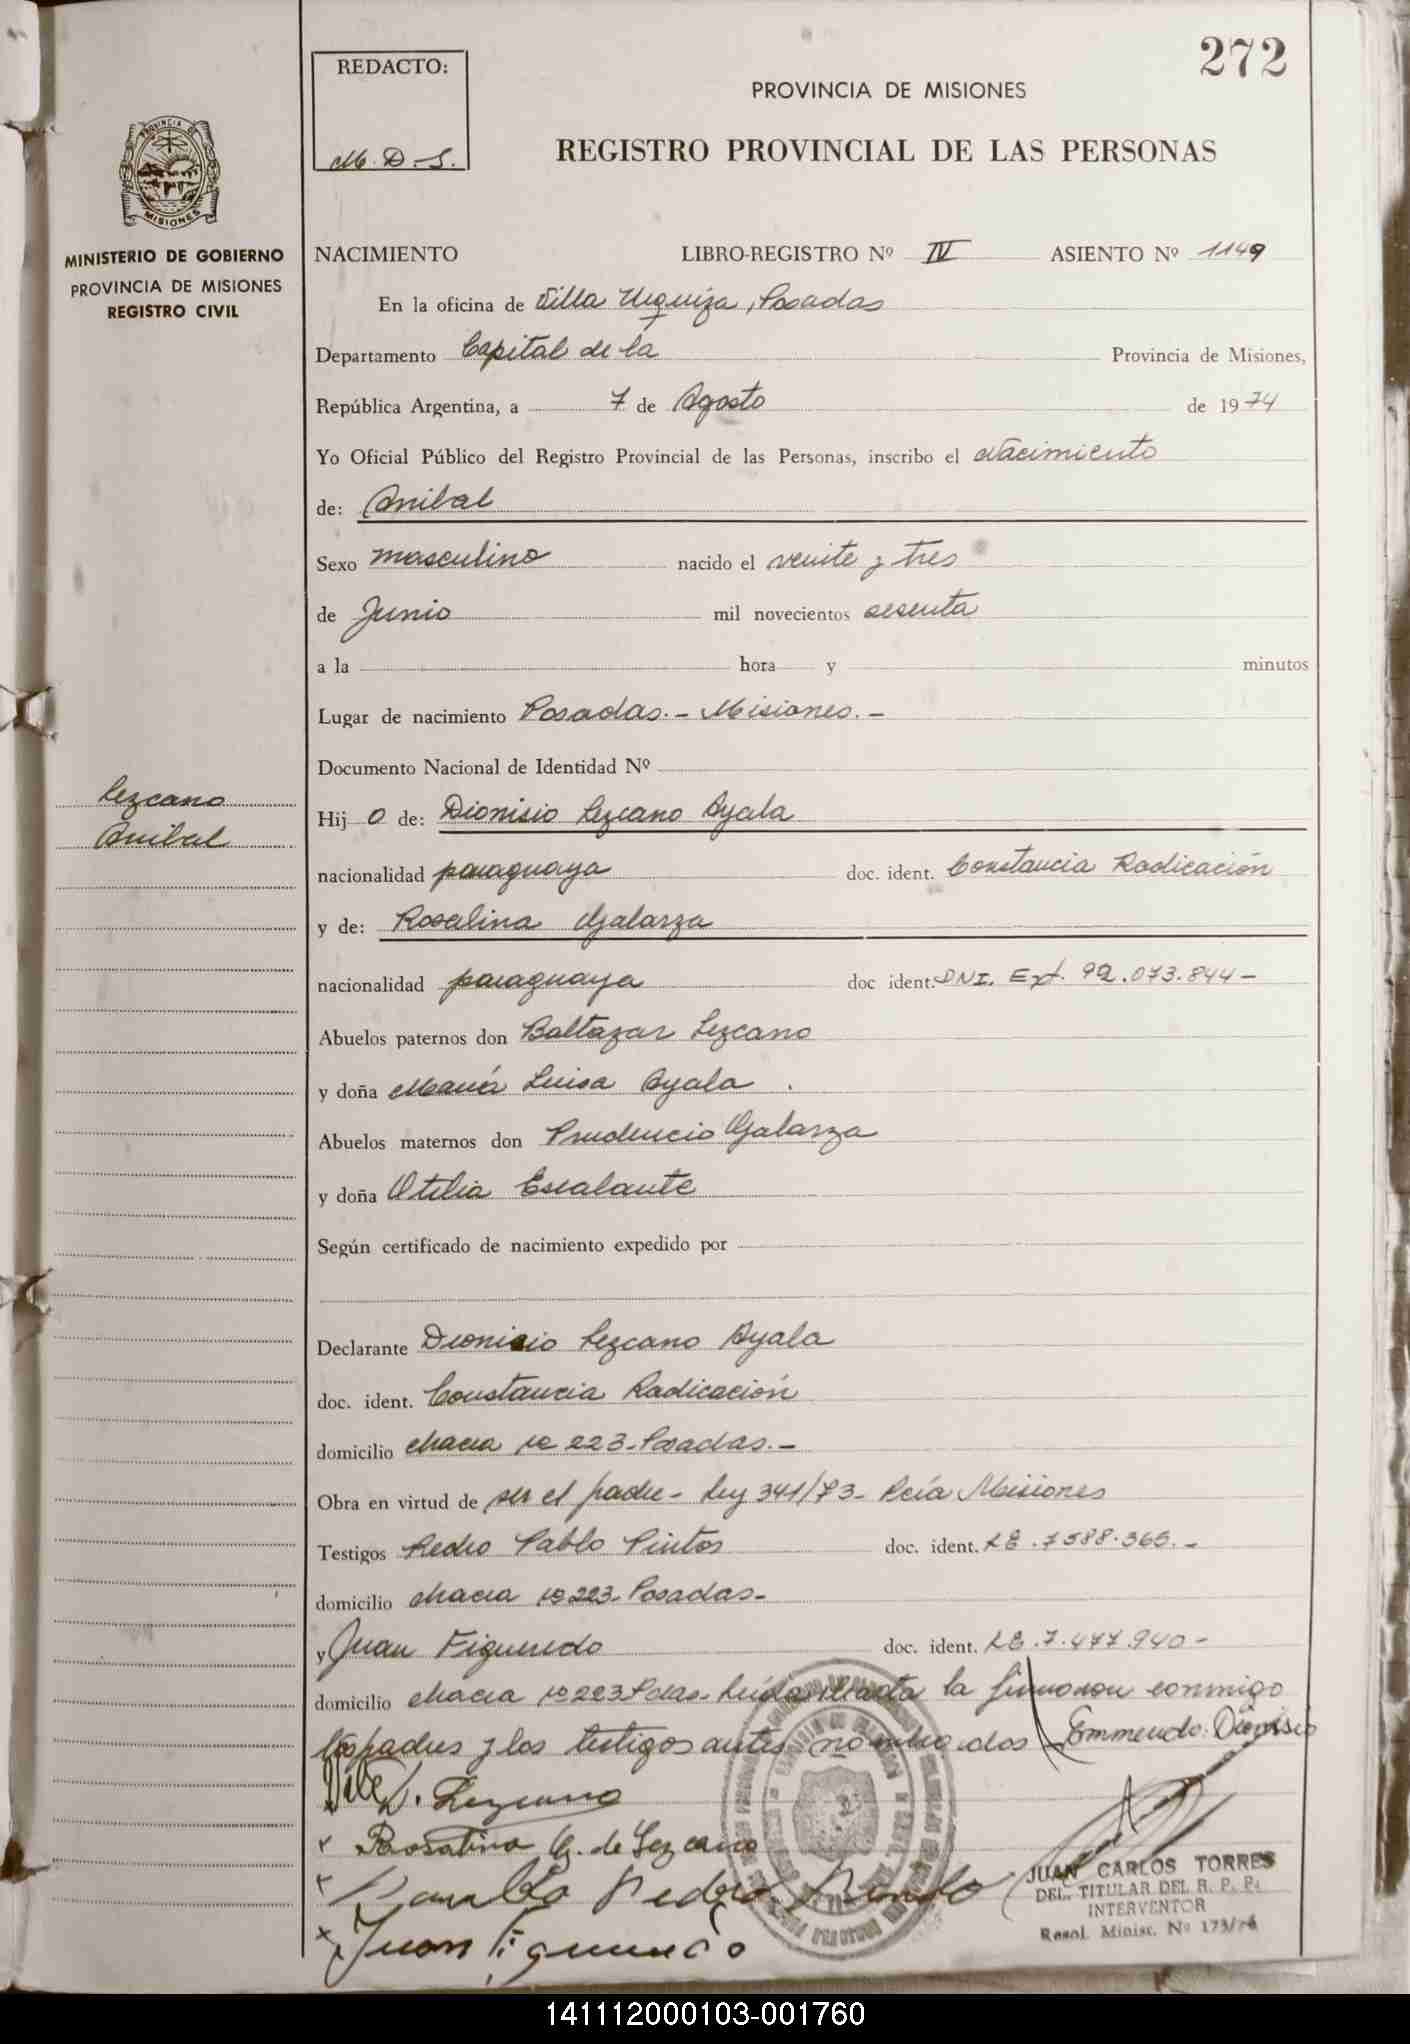 272
REDACTO:
M. D. S.
PROVINCIA DE MISIONES
REGISTRO PROVINCIAL DE LAS PERSONAS
PROVINCIA DE
MISIONES
MINISTERIO DE GOBIERNO
PROVINCIA DE MISIONES
REGISTRO CIVIL
Lezcano
Anibal
NACIMIENTO LIBRO-REGISTRO Nº IV ASIENTO Nº 1149
En la oficina de Villa Urquiza, Posadas
Departamento Capital de la Provincia de Misiones,
República Argentina, a 7 de Agosto de 1974
Yo Oficial Público del Registro Provincial de las Personas, inscribo el Nacimiento
de: Anibal
Sexo masculino nacido el veinte y tres
de Junio mil novecientos sesenta
a la hora y minutos
Lugar de nacimiento Posadas.- Misiones.-
Documento Nacional de Identidad Nº
Hij o de: Dionisio Lezcano Ayala
nacionalidad paraguaya doc. ident. Constancia Radicación
y de: Rosalina Galarza
nacionalidad paraguaya doc ident. DNI. Ext. 92.073.844-
Abuelos paternos don Baltazar Lezcano
y doña María Luisa Ayala.
Abuelos maternos don Prudencio Galarza
y doña Otilia Escalante
Según certificado de nacimiento expedido por
Declarante Dionisio Lezcano Ayala
doc. ident. Constancia Radicación
domicilio chacra no 223-Posadas.-
Obra en virtud de ser el padre- Ley 341/73- Pcía Misiones
Testigos Pedro Pablo Pintos doc. ident. LE. 7588.365.-
domicilio chacra no 223-Posadas-
y Juan Figueredo doc. ident. LE. 7.477.940-
domicilio chacra no 223 Pdas- Leída el acta la firmaron conmigo
los padres y los testigos antes nombrados Enmiendo: Dionisio
Vale D. Lezcano
x Rosalina G. de Lezcano
x Pablo Pedro
x Juan Figueredo
JUAN CARLOS TORRES
DEL. TITULAR DEL R. P. P.
INTERVENTOR
Resol. Minist. Nº 173/74
141112000103-001760